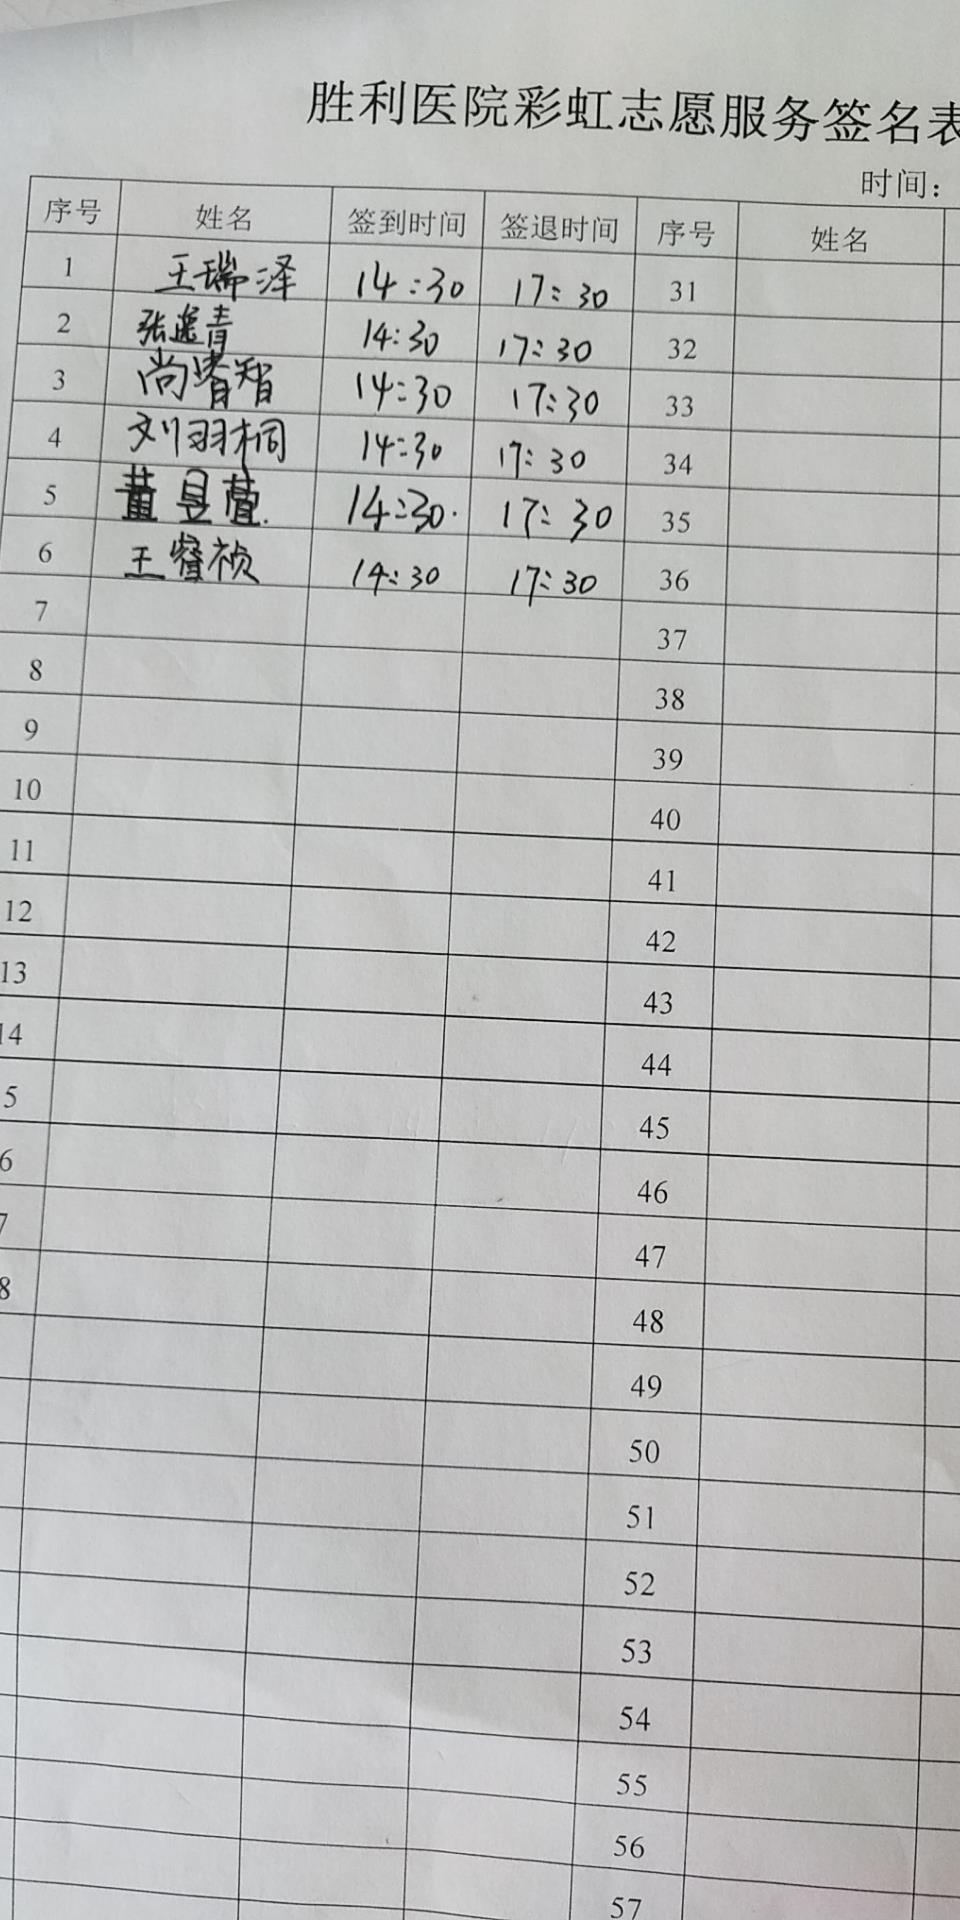 胜利医院彩虹志愿服务签名表
时间：
序号 姓名 签到时间 签退时间 序号 姓名
1 王瑞泽 14:30 17:30 31
2 张逸青 14:30 17:30 32
3 尚睿智 14:30 17:30 33
4 刘羽桐 14:30 17:30 34
5 董昱萱. 14:30. 17:30 35
6 王睿祯 14:30 17:30 36
7 37
8 38
9 39
10 40
11 41
12 42
13 43
14 44
5 45
6 46
7 47
8 48
49
50
51
52
53
54
55
56
57